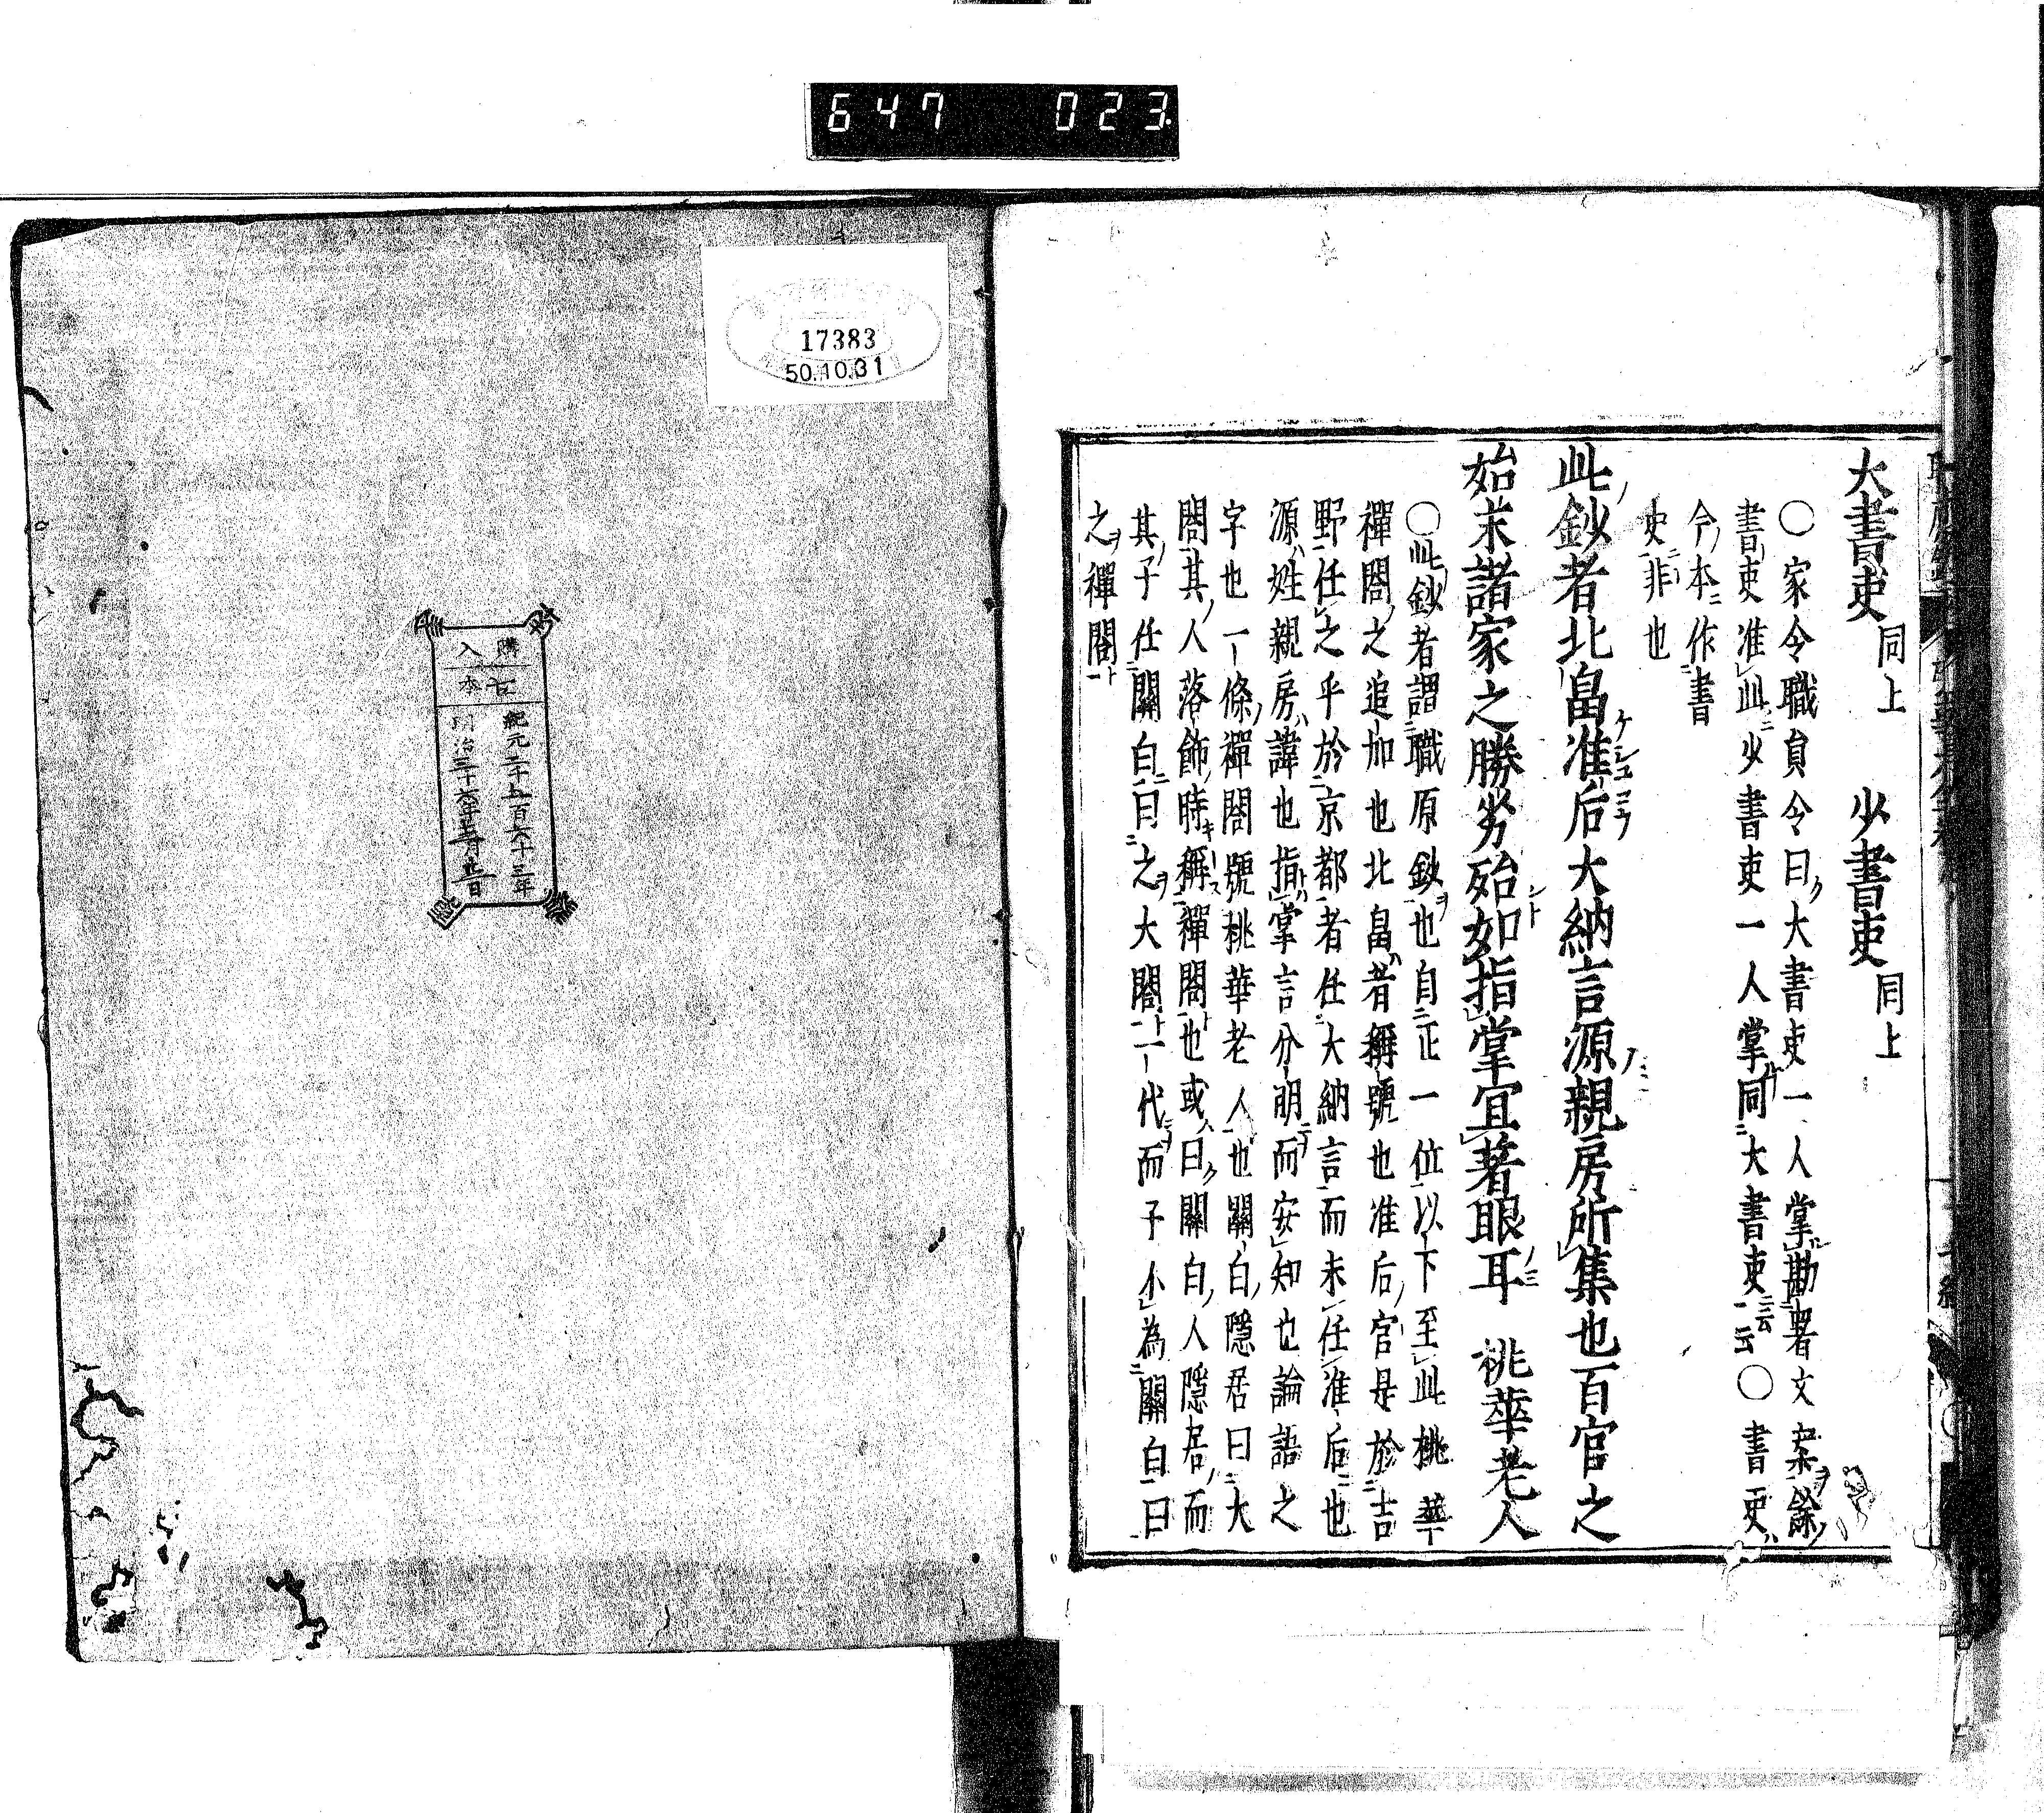 647 023
大書吏同上 少書吏同上
○家令職員令曰大書吏一人掌勘署文案餘
書吏准此少書吏一人掌同大書吏云云○書吏
今本作書
史非也
此鈔者北畠准后大納言源親房所集也百官之
始末諸家之勝劣殆如指掌宜著眼耳 桃華老人
○此鈔者謂職原鈔也自正一位以下至此桃華
禪閤之追加也北畠者稱號也准后官是於吉
野任之乎於京都者任大納言而未任准后也
源姓親房諱也指掌言分明而安知也論語之
字也一條禪閤號桃華老人也關白隱居曰大
閤其人落飾時稱禪閤也或曰關白人隱居而
其子任關白曰之大閤一代而子不為關白曰
之禪閤
17383
50.10.31
購入
古本
紀元二千五百六十三年
明治三十六年